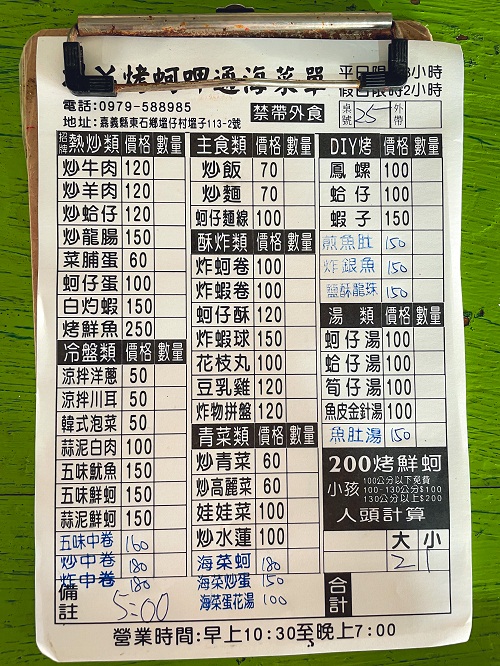 烤蚵呷通海菜單
平日限 3小時
電話:0979-588985
假日限時2小時
地址:嘉義縣東石鄉塭仔村塭子113-2號
禁帶外食
桌號 25 外帶
招牌 熱炒類 價格 數量
炒牛肉 120
炒羊肉 120
炒蛤仔 120
炒龍腸 150
菜脯蛋 60
蚵仔蛋 100
白灼蝦 150
烤鮮魚 250
冷盤類 價格 數量
涼拌洋蔥 50
涼拌川耳 50
韓式泡菜 50
蒜泥白肉 100
五味魷魚 150
五味鮮蚵 150
蒜泥鮮蚵 150
五味中卷 160
炒中卷 180
炸中卷 180
備註 5:00
主食類 價格 數量
炒飯 70
炒麵 70
蚵仔麵線 100
酥炸類 價格 數量
炸蚵卷 100
炸蝦卷 100
蚵仔酥 120
炸蝦球 150
花枝丸 100
豆乳雞 120
炸物拼盤 120
青菜類 價格 數量
炒青菜 60
炒高麗菜 60
娃娃菜 100
炒水蓮 100
海菜蚵 180
海菜炒蛋 150
海菜蛋花湯 100
DIY烤 價格 數量
鳳螺 100
蛤仔 100
蝦子 150
煎魚肚 150
炸銀魚 150
鹽酥龍珠 150
湯類 價格 數量
蚵仔湯 100
蛤仔湯 100
筍仔湯 100
魚皮金針湯 100
魚肚湯 150
200烤鮮蚵
小孩
100公分以下免費
100-130公分$100
130公分以上$200
人頭計算
大 小
2 1
合計
營業時間:早上10:30至晚上7:00